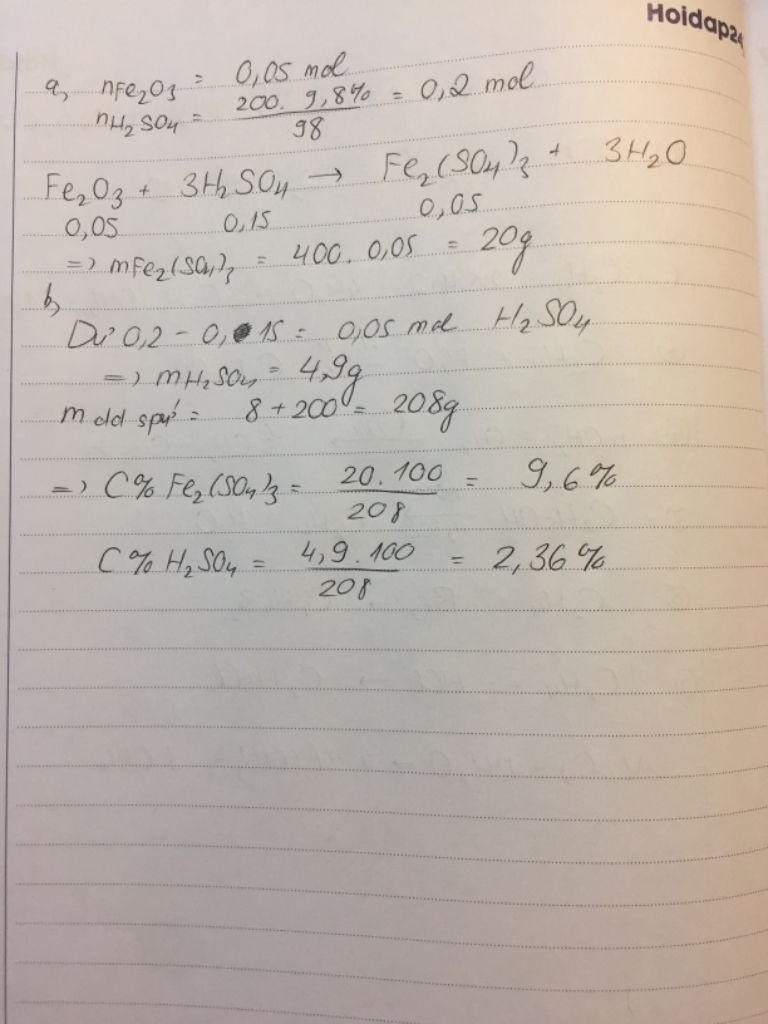 Hoidap24
a, nFe₂O₃ = 0,05 mol
nH₂SO₄ = 200. 9,8% / 98 = 0,2 mol
Fe₂O₃ + 3H₂SO₄ → Fe₂(SO₄)₃ + 3H₂O
0,05 0,15 0,05
=> mFe₂(SO₄)₃ = 400. 0,05 = 20g
b,
Dư 0,2 - 0,15 = 0,05 mol H₂SO₄
=> mH₂SO₄ = 4,9g
m dd spứ = 8 + 200 = 208g
=> C% Fe₂(SO₄)₃ = 20.100 / 208 = 9,6%
C% H₂SO₄ = 4,9.100 / 208 = 2,36%